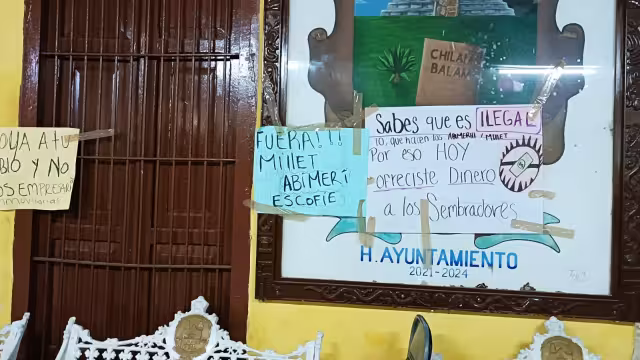 CHILAM
BALAM
OYA A tu
BLO Y NO
OS EMPRESARI
FUERA!!!
MILLET
ABIMERI
ESCOFIE
Sabes que es ILEGAL
lo que hacen los ABIMERHI / MILLET
Por eso HOY
ofreciste Dinero
a los Sembradores
H. AYUNTAMIENTO
2021-2024